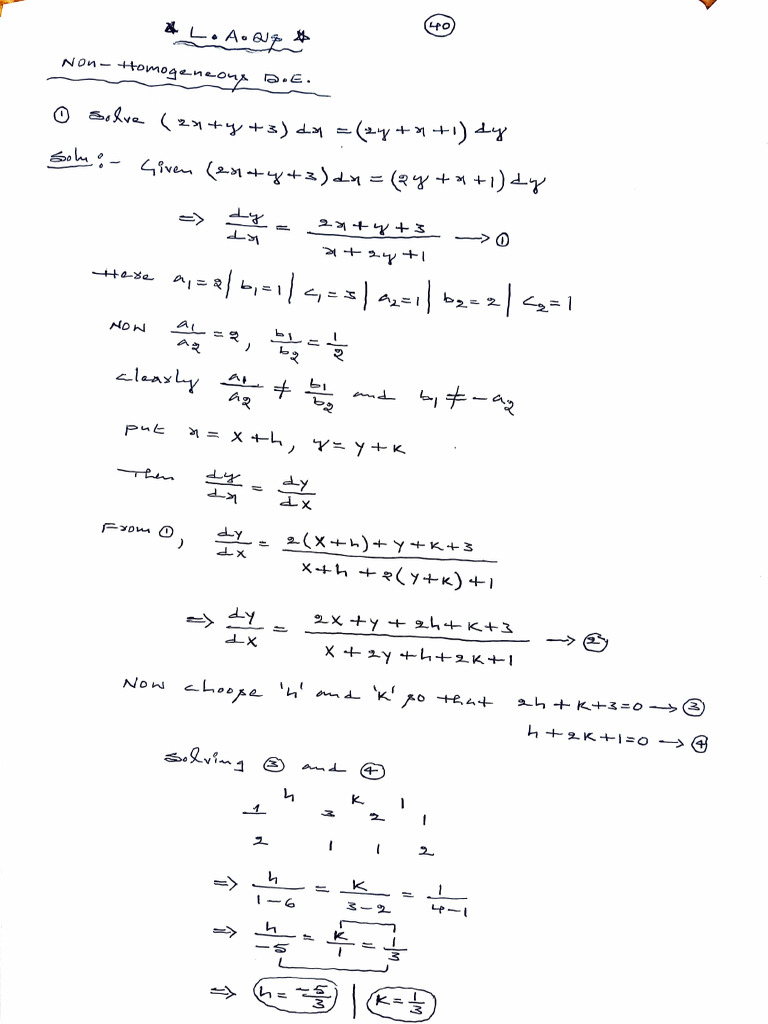 40
* L.A.Qs *
Non-Homogeneous D.E.
① Solve (2x+y+3) dx = (2y+x+1) dy
Soln :- Given (2x+y+3) dx = (2y+x+1) dy
=> dy/dx = (2x+y+3)/(x+2y+1) → ①
Here a₁=2 | b₁=1 | c₁=3 | a₂=1 | b₂=2 | c₂=1
Now a₁/a₂ = 2, b₁/b₂ = 1/2
clearly a₁/a₂ ≠ b₁/b₂ and b₁ ≠ -a₂
put x = X+h, y = Y+K
Then dy/dx = dY/dX
From ①, dY/dX = (2(X+h)+Y+K+3)/(X+h+2(Y+K)+1)
=> dY/dX = (2X+Y+2h+K+3)/(X+2Y+h+2K+1) → ②
Now choose 'h' and 'K' so that 2h+K+3=0 → ③
h+2K+1=0 → ④
Solving ③ and ④
h K 1
1 3 2 1
2 1 1 2
=> h/(1-6) = K/(3-2) = 1/(4-1)
=> h/-5 = K/1 = 1/3
=> h = -5/3 | K = 1/3